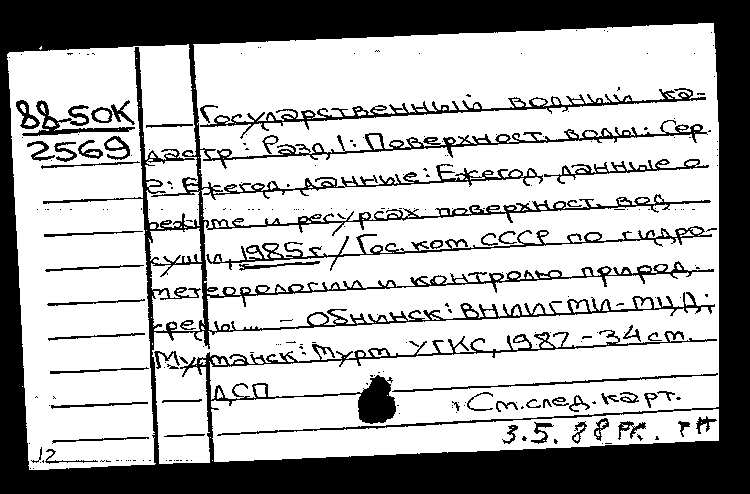 88-5ОК
2569
Государственный водный ка-
дастр: Разд. 1: Поверхност. воды: Сер.
2: Ежегод. данные: Ежегод. данные о
режиме и ресурсах поверхност. вод
суши, 1985 г. / Гос. ком. СССР по гидро-
метеорологии и контролю природ.
среды... - Обнинск: ВНИИГМИ-МЦД;
Мурманск: Мурм. УГКС, 1987. - 34 см.
ДСП
См. след. карт.
3.5.88 РК. ТН
12